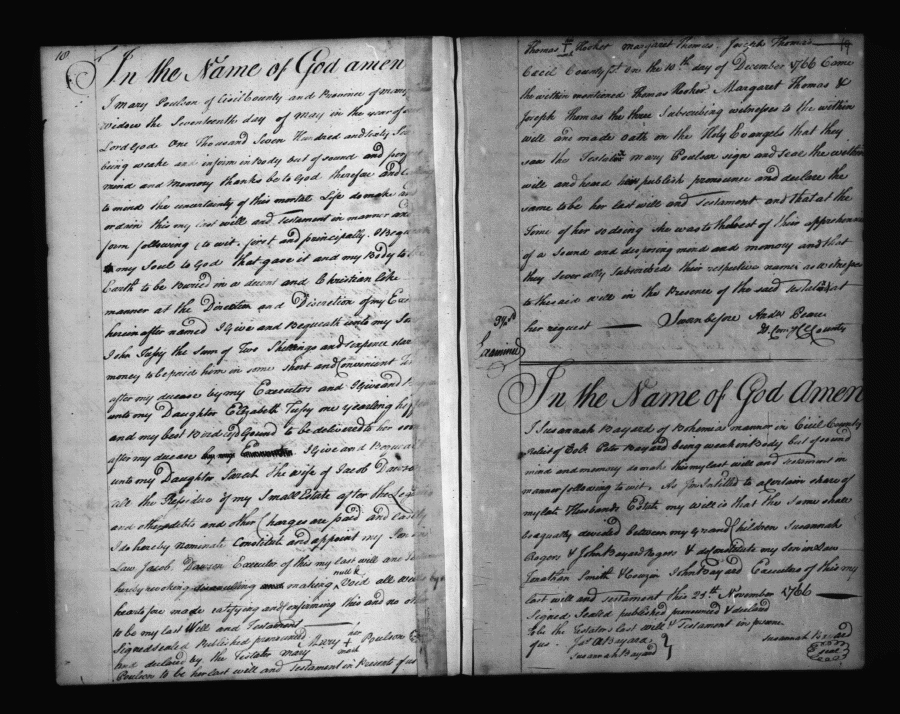 18
In the Name of God amen
I Mary Poulson of Cicil County and Province of Mary
Widow the Seventeenth day of May in the year of
Lord God One Thousand Seven Hundred and Sixty
being weake and infirm in Body but of sound and
mind and Memory thanks be to God therefore and
to minde the uncertainty of this mortal Life do make
ordain this my last will and Testament in manner and
form following (to wit, first and principally, I Beque
my Soul to God that gave it and my Body to the
Earth to be Buried in a decent and Christian like
manner at the Direction and Discretion of my Exec
herein after named I Give and Bequeath unto my
John the Sum of Two Shillings and sixpence
money to be paid him in some Short and Convenient
after my decease by my Executors and I Give and
unto my Daughter Elizabeth one yearling
and my best Gound to be delivered to her
after my decease I Give and Bequeath
unto my Daughter Sarah The wife of Jacob
all the Residue of my Small Estate after the
and other debts and other Charges are paid and Lastly
I do hereby nominate Constitute and appoint my Son in
Law Jacob Executor of this my last will and
hereby revoking and making null & Void all
heartofore made ratifying and Confirming this and no other
to be my Last Will and Testament
Signed sealed Published pronounced Mary her + mark Poulson
and declared by the Testator Mary
Poulson to be her last will and Testament in Presents of us
19
Thomas Hooker Margaret Thomas Joseph Thomas
Cecil County Sct on the 10th day of December 1766 Came
the within mentioned Thomas Hooker Margaret Thomas &
Joseph Thomas the three Subscribing witnesses to the within
will and made oath on the Holy Evangels that they
saw the Testator Mary Poulson sign and seal the within
will and heard her publish pronounce and declare the
same to be her last will and Testament, and that at the
time of her so doing she was to the best of their apprehension
of a sound and desposing mind and memory and that
they Severally Subscribed their respective names as witnesses
to the said will in the Presence of the said Testator at
her request Sworn before Andw Pearce
D. Com. Cl County
Examined
In the Name of God Amen
I Susannah Bayard of Bohemia manner in Cicil County
relict of Colo Peter Bayard being weak on Body but of sound
mind and memory do make this my last will and testament in
manner following to wit. As for Intitled to a certain share of
my late Husbands Estate my will is that the same shall
be equally devided between my grand Children Susannah
Rogers & John Bayard Rogers & do Constitute my Son in Law
Jonathan Smith & Cousin John Bayard Executors of this my
last will and testament this 25th November 1766
Signed Sealed published pronounced & declared
to be the Testators last will & Testament in presence
of us. Jas A Bayard
Susannah Bayard
Susannah Bayard
Seal